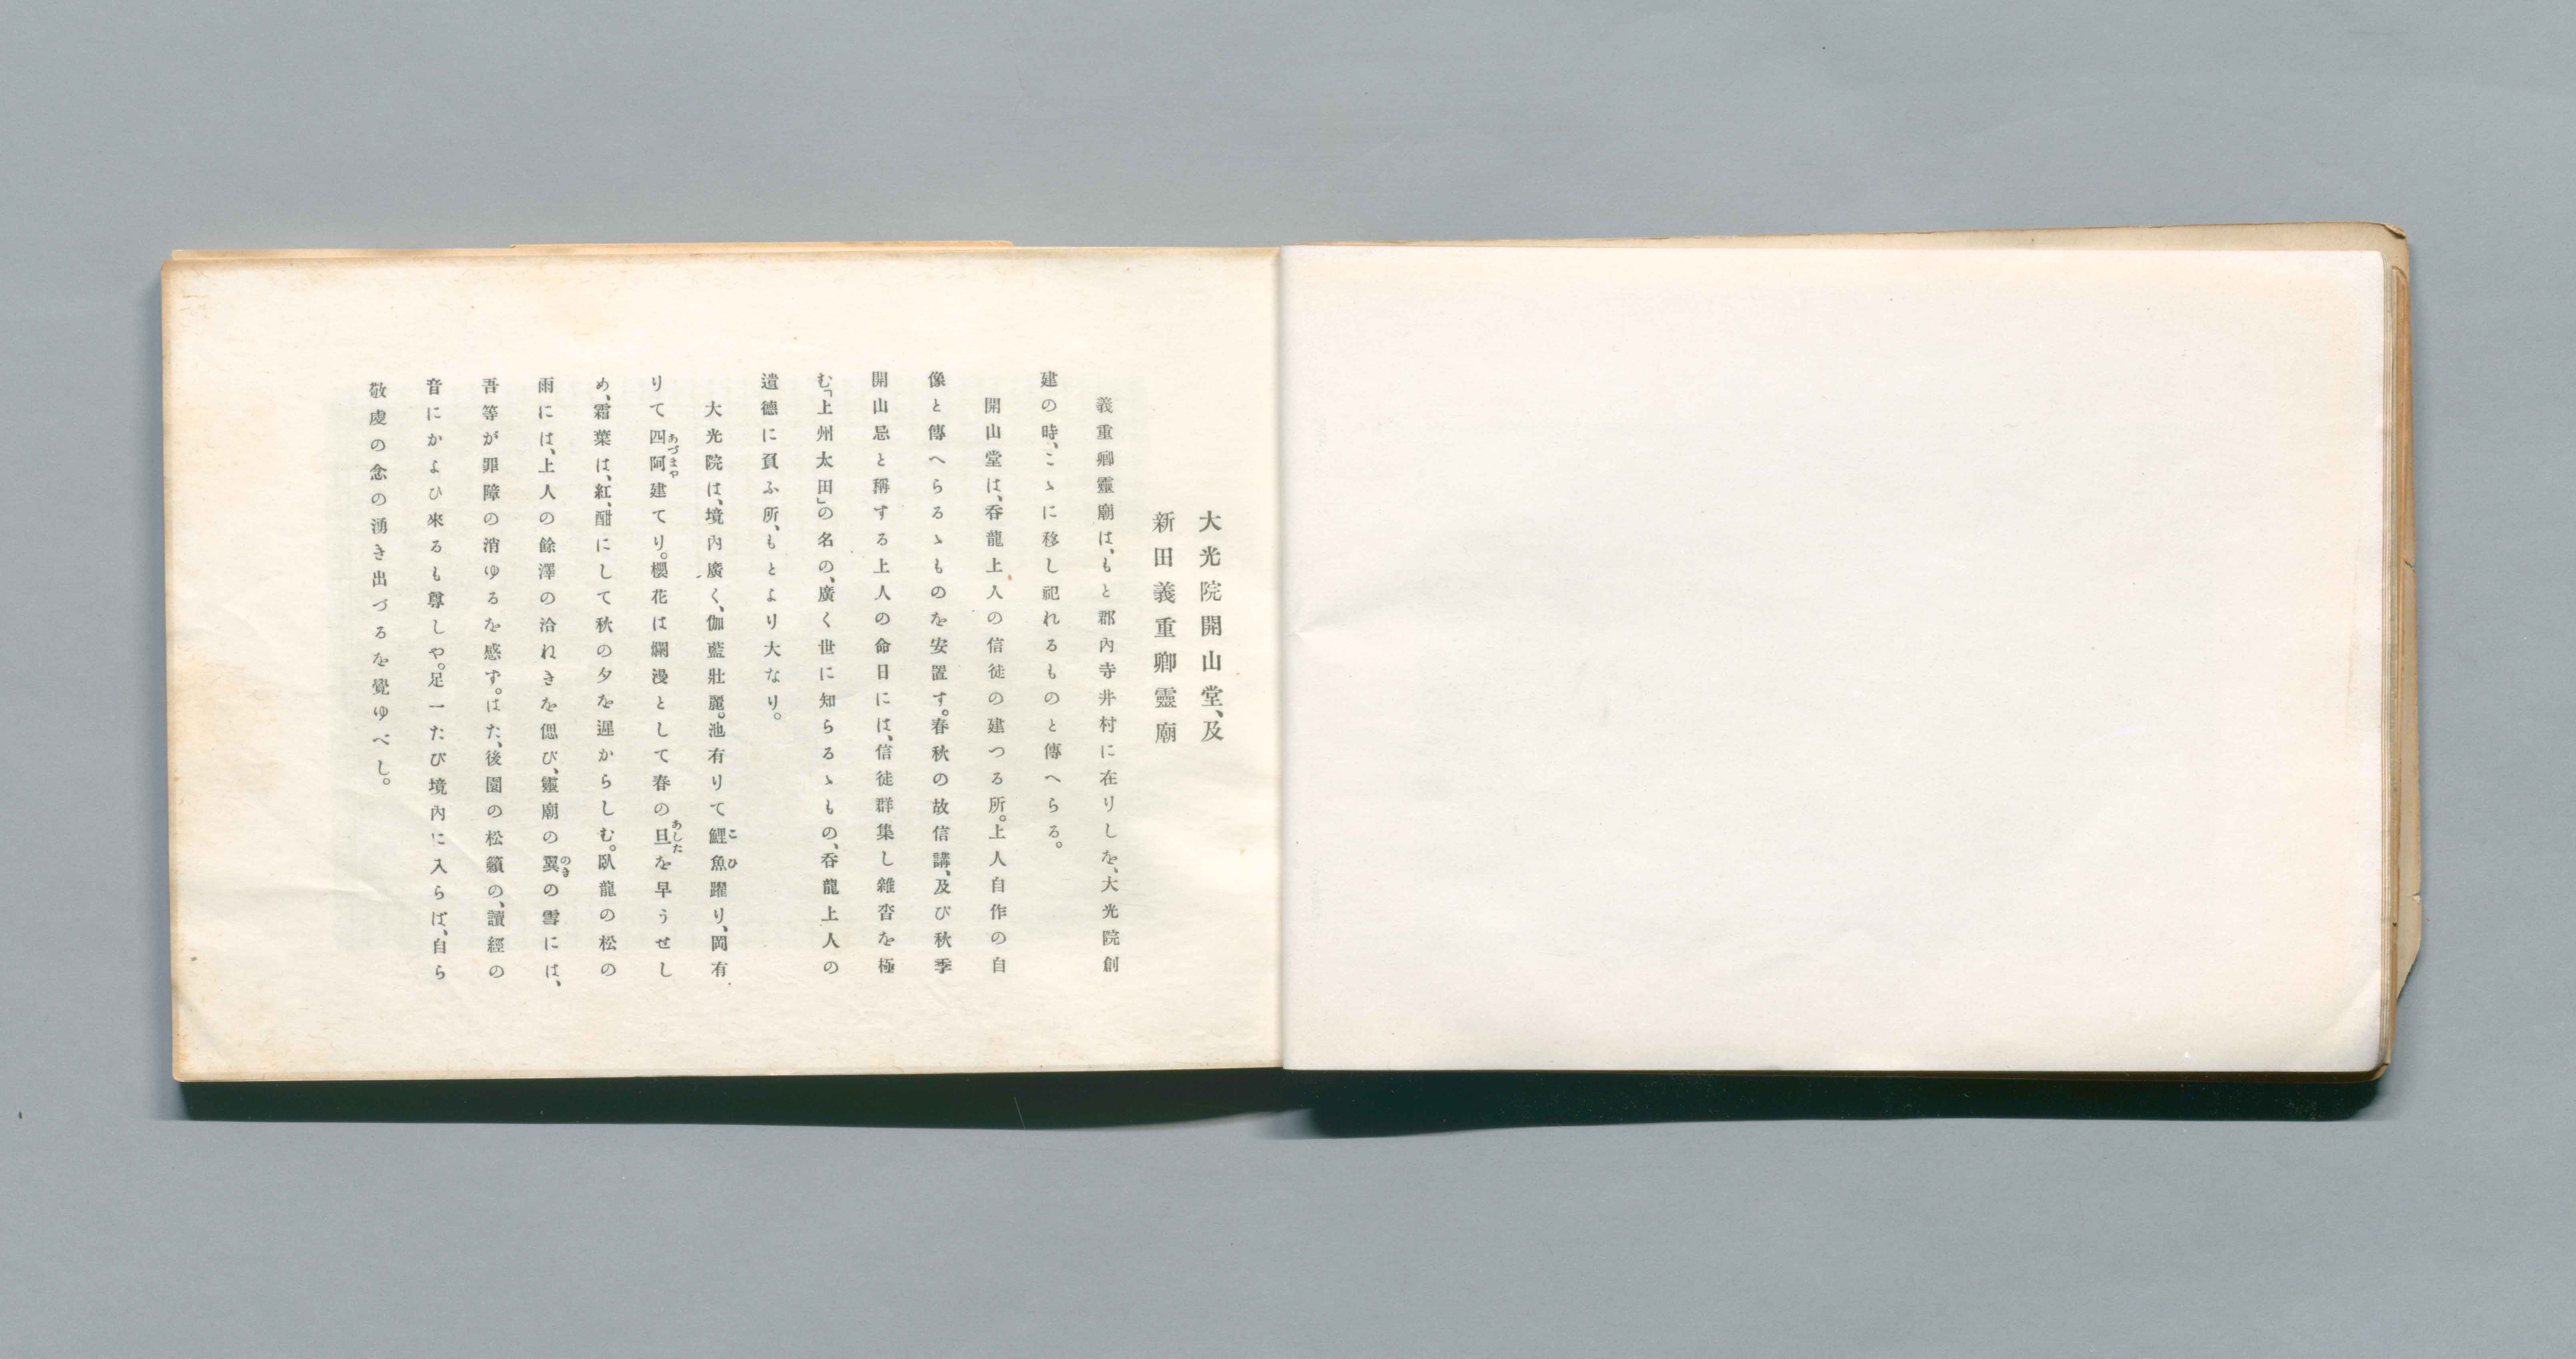 大光院開山堂、及
新田義重卿靈廟
義重卿靈廟は、もと郡內寺井村に在りしを、大光院創
建の時、こゝに移し祀れるものと傳へらる。
開山堂は、呑龍上人の信徒の建つる所。上人自作の自
像と傳へらるゝものを安置す。春秋の故信講、及び秋季
開山忌と稱する上人の命日には、信徒群集し雜沓を極
む。「上州太田」の名の、廣く世に知らるゝもの、呑龍上人の
遺德に負ふ所、もとより大なり。
大光院は、境內廣く、伽藍壯麗。池有りて鯉魚躍り、岡有
りて四阿建てり。櫻花は爛漫として春の旦を早うせし
め、霜葉は、紅、酣にして秋の夕を遲からしむ。臥龍の松の
雨には、上人の餘澤の洽ねきを偲び、靈廟の翼の雪には、
吾等が罪障の消ゆるを感ず。はた、後園の松籟の、讀經の
音にかよひ來るも尊しや。足一たび境內に入らば、自ら
敬虔の念の湧き出づるを覺ゆべし。
こひ
あづまや
あした
のき